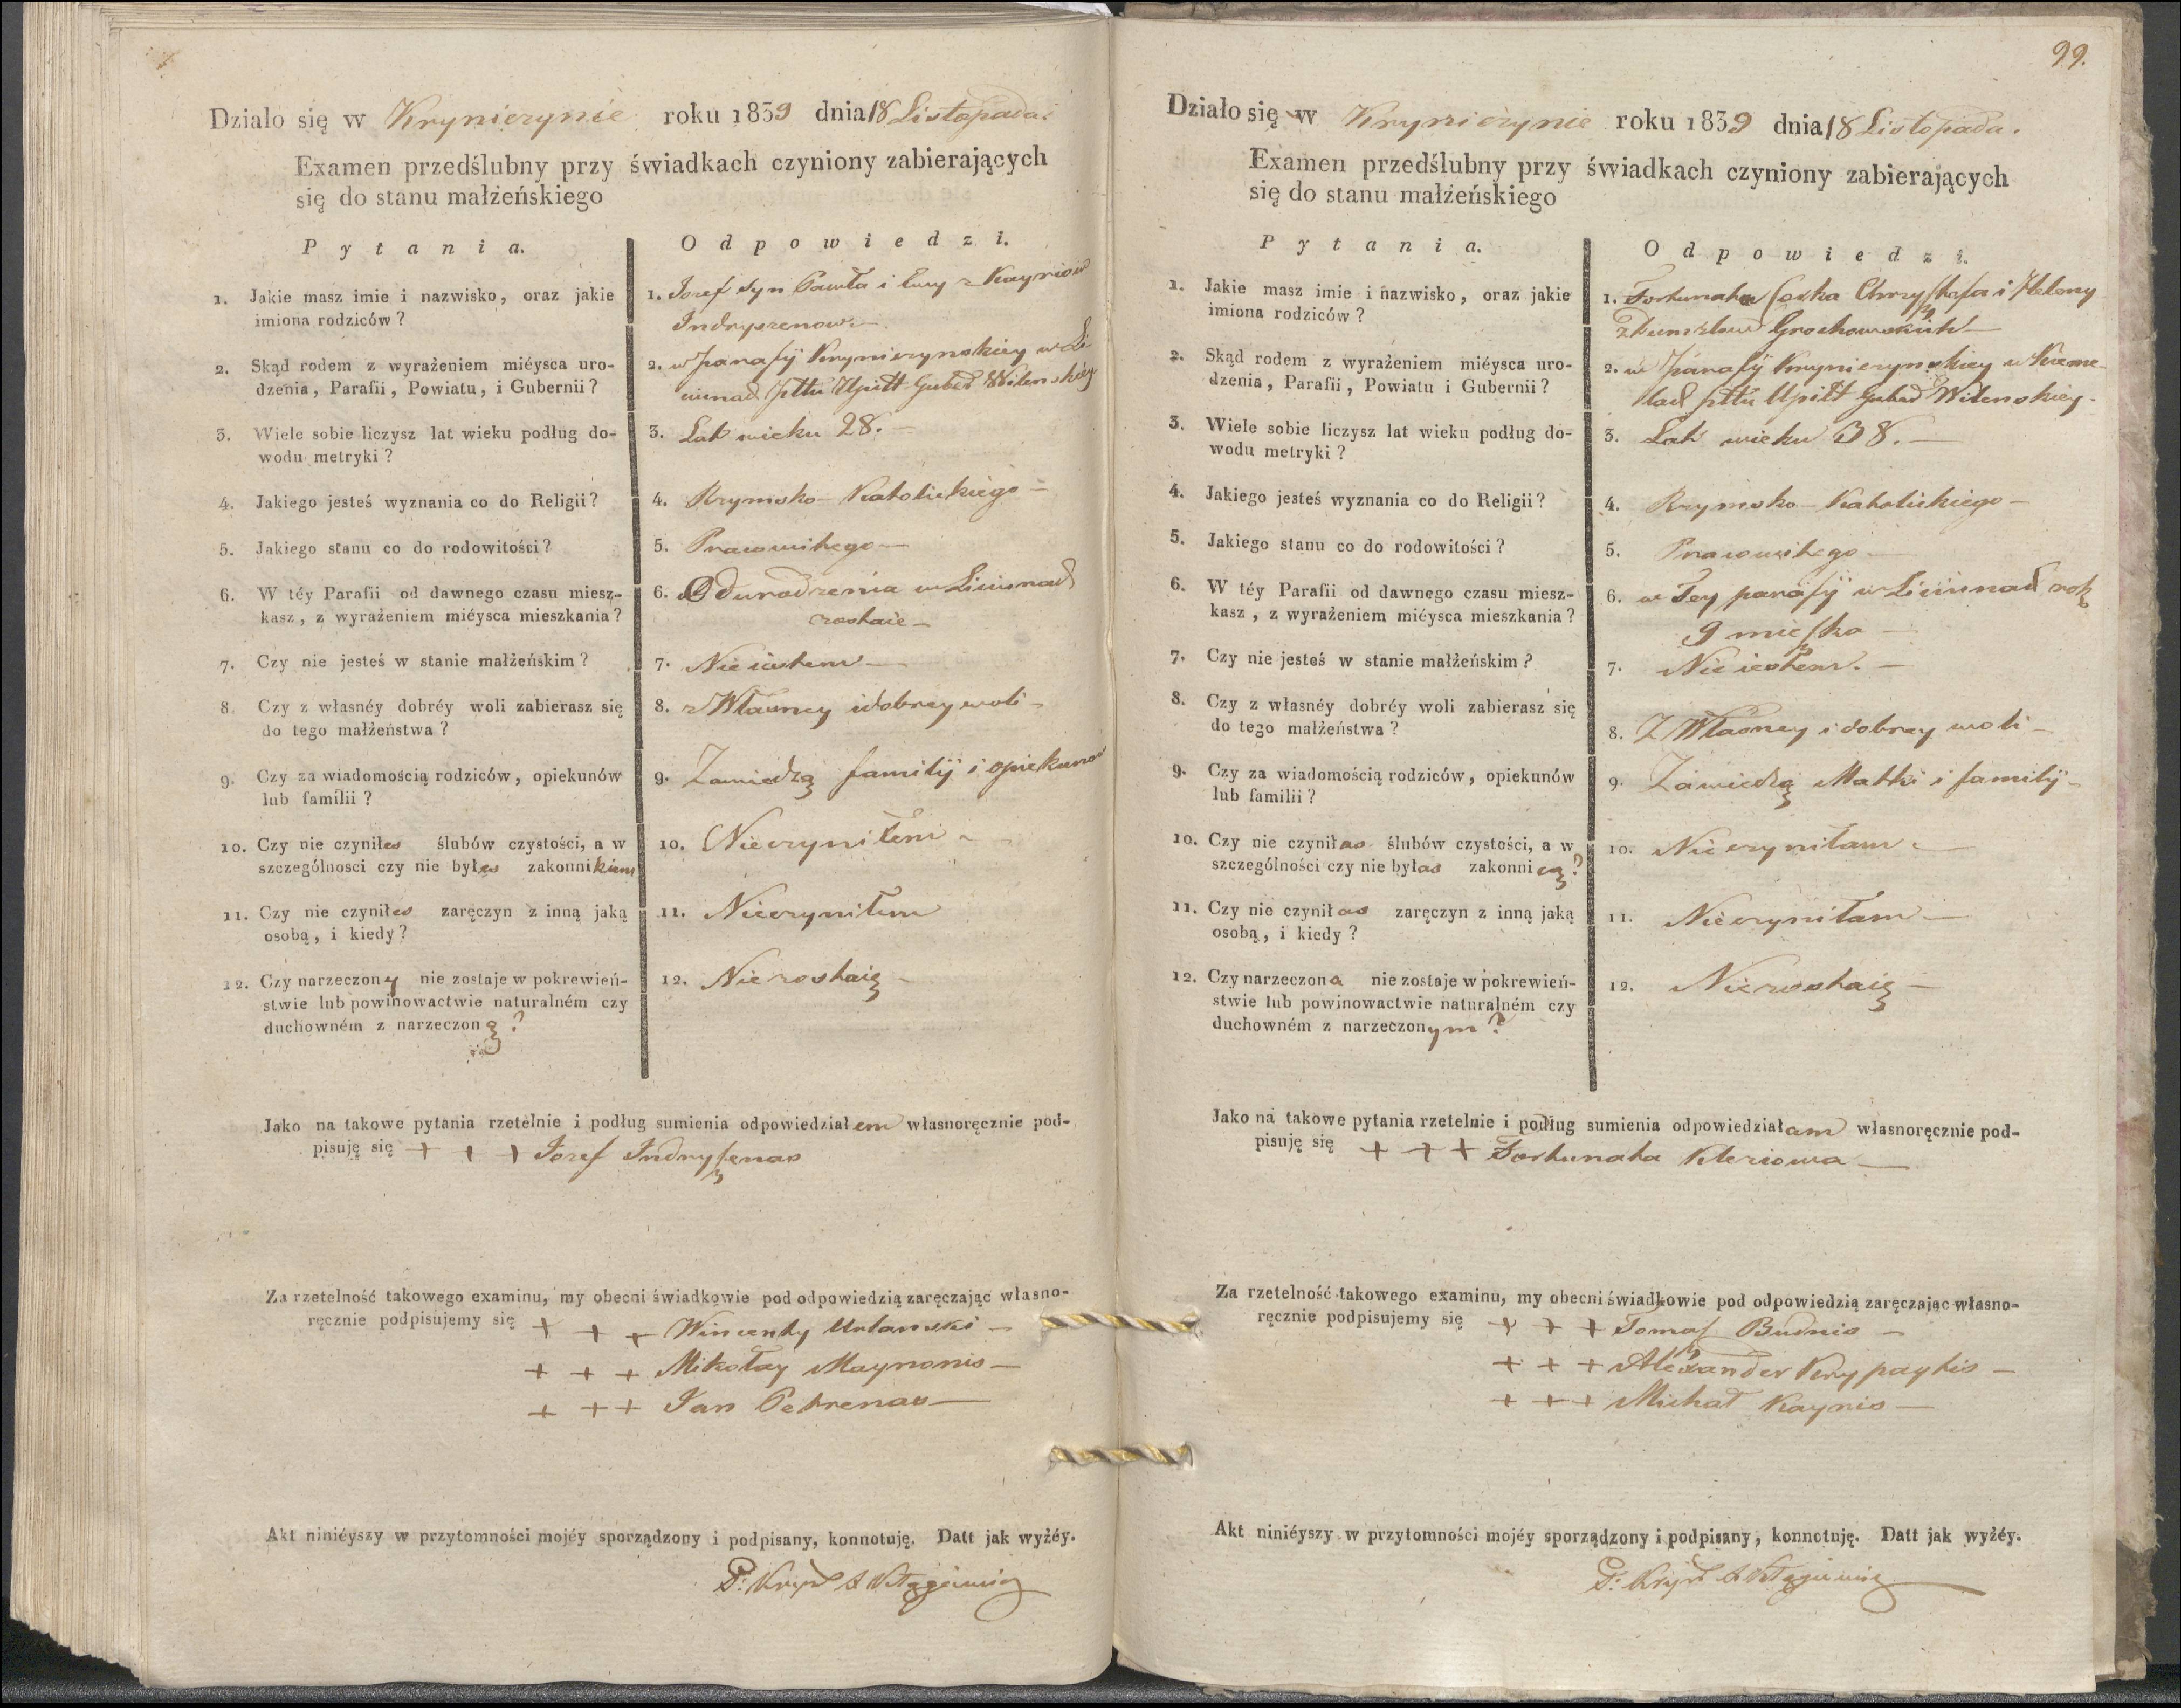 Działo się w Kryniczynie roku 1839 dnia 18 Listopada.
Examen przedślubny przy świadkach czyniony zabierających
się do stanu małżeńskiego
Pytania.
Odpowiedzi.
1. Jakie masz imie i nazwisko, oraz jakie
imiona rodziców?
1. Jozef Syn Pawła i Ewy z Kayniow
Indryszenow
2. Skąd rodem z wyrażeniem miéysca uro-
dzenia, Parafii, Powiatu, i Gubernii?
2. w parafij Kryniczynskiey w Li
Pttu Upitt Guber Wilenskiey
3. Wiele sobie liczysz lat wieku podług do-
wodu metryki?
3. Lat wieku 28.
4. Jakiego jesteś wyznania co do Religii?
4. Rzymsko-Katolickiego
5. Jakiego stanu co do rodowitości?
5. Prawowitego
6. W téy Parafii od dawnego czasu miesz-
kasz, z wyrażeniem miéysca mieszkania?
6. Od urodzenia w
zostaie
7. Czy nie jesteś w stanie małżeńskim?
7. Nie iestem
8. Czy z własnéy dobréy woli zabierasz się
do tego małżeństwa?
8. z Własney i dobrey woli
9. Czy za wiadomością rodziców, opiekunów
lub familii?
9. Zawiedzą familij i opiekunow
10. Czy nie czyniłes ślubów czystości, a w
szczególnosci czy nie byłes zakonnikiem
10. Nieczyniłem
11. Czy nie czyniłes zaręczyn z inną jaką
osobą, i kiedy?
11. Nieczyniłem
12. Czy narzeczony nie zostaje w pokrewień-
stwie lub powinowactwie naturalném czy
duchowném z narzeczoną?
12. Niezostaię
Jako na takowe pytania rzetelnie i podług sumienia odpowiedziałem własnoręcznie pod-
pisuję się + + + Jozef Indryszenas
Za rzetelność takowego examinu, my obecni świadkowie pod odpowiedzią zaręczając własno-
ręcznie podpisujemy się + + + Wincenty Urlanski
+ + + Mikołay Maynonis
+ + + Jan Petrenas
Akt niniéyszy w przytomności mojéy sporządzony i podpisany, konnotuję. Datt jak wyżéy.
99.
Działo się w Kryniczynie roku 1839 dnia 18 Listopada.
Examen przedślubny przy świadkach czyniony zabierających
się do stanu małżeńskiego
Pytania.
Odpowiedzi.
1. Jakie masz imie i nazwisko, oraz jakie
imiona rodziców?
1. Fortunata Corka Chrysztofa i Heleny
Grochowskich
2. Skąd rodem z wyrażeniem miéysca uro-
dzenia, Parafii, Powiatu i Gubernii?
2. w parafij Kryniczynskiey w
pttu Upitt Guber Wilenskiey.
3. Wiele sobie liczysz lat wieku podług do-
wodu metryki?
3. Lat wieku 38.
4. Jakiego jesteś wyznania co do Religii?
4. Rzymsko-Katolickiego
5. Jakiego stanu co do rodowitości?
5. Prawowitego
6. W téy Parafii od dawnego czasu miesz-
kasz, z wyrażeniem miéysca mieszkania?
6. w Tey parafij w
7. Czy nie jesteś w stanie małżeńskim?
7. Nie iestem.
8. Czy z własnéy dobréy woli zabierasz się
do tego małżeństwa?
8. Z Własney i dobrey woli
9. Czy za wiadomością rodziców, opiekunów
lub familii?
9. Zawiedzą Matki i familij
10. Czy nie czyniłas ślubów czystości, a w
szczególności czy nie byłas zakonnicą?
10. Nieczyniłam
11. Czy nie czyniłas zaręczyn z inną jaką
osobą, i kiedy?
11. Nieczyniłam
12. Czy narzeczona nie zostaje w pokrewień-
stwie lub powinowactwie naturalném czy
duchowném z narzeczonym?
12. Niezostaię
Jako na takowe pytania rzetelnie i podług sumienia odpowiedziałam własnoręcznie pod-
pisuję się + + + Fortunata Kleziowa
Za rzetelność takowego examinu, my obecni świadkowie pod odpowiedzią zaręczając własno-
ręcznie podpisujemy się + + + Tomasz Budnis
+ + + Alexander Krypaytis
+ + + Michał Kaynis
Akt niniéyszy w przytomności mojéy sporządzony i podpisany, konnotuję. Datt jak wyżéy.